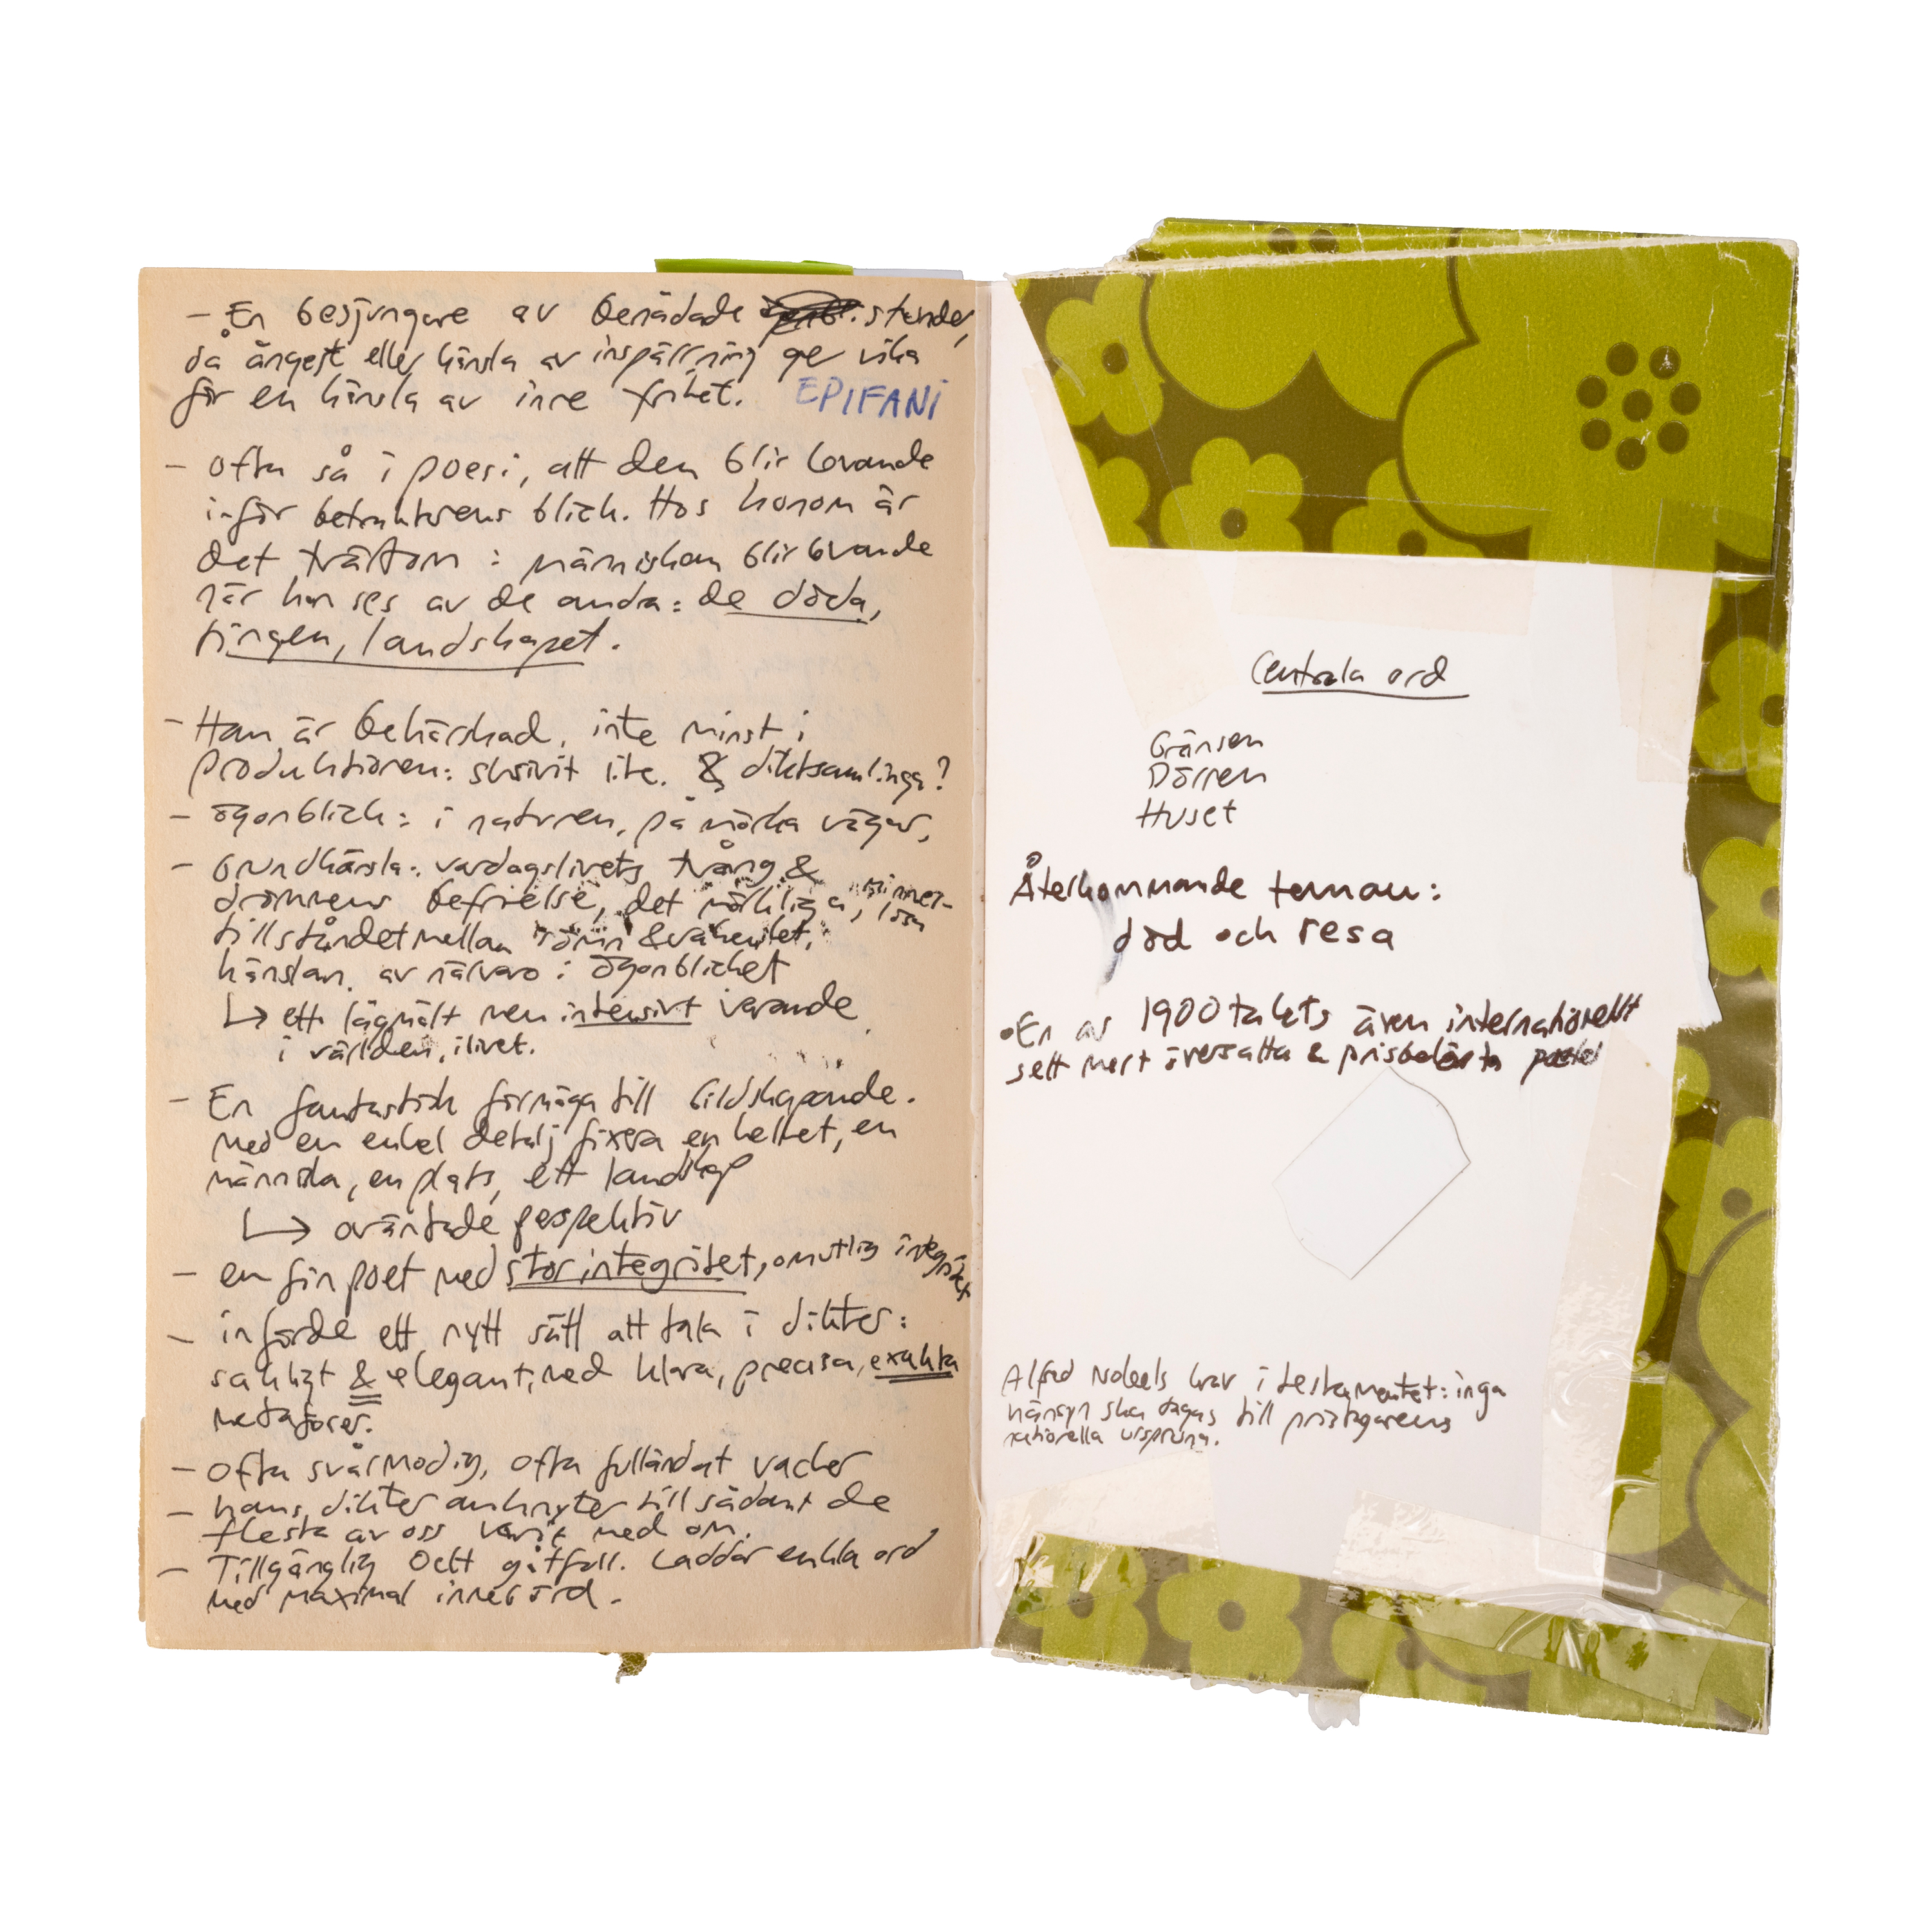 – En besjungare av benådade stunder,
då ångest eller känsla av inspärrning ger vika
för en känsla av inre frihet. EPIFANI
– Ofta så i poesi, att den blir levande
inför betraktarens blick. Hos honom är
det tvärtom : människan blir levande
när hon ses av de andra: de döda,
tingen, landskapet.
– Han är behärskad, inte minst i
produktionen: skrivit lite. 8 diktsamlingar?
– ögonblick: i naturen, på mörka vägar,
– Grundkänsla: vardagslivets tvång &
drömmens befrielse, det märkliga, minnes-
lösa
tillståndet mellan dröm & vakenhet,
känslan av närvaro i ögonblicket
↳ ett lågmält men intensivt varande
i världen, i livet.
– En fantastisk förmåga till bildskapande.
med en enkel detalj fixera en helhet, en
människa, en plats, ett landskap
↳ oväntade perspektiv
– en fin poet med stor integritet, omutlig integritet
– införde ett nytt sätt att tala i dikter:
sakligt & elegant, med klara, precisa, exakta
metaforer.
– Ofta svårmodig, ofta fulländat vacker
– hans dikter anknyter till sådant de
flesta av oss varit med om.
– Tillgänglig och gåtfull. Laddar enkla ord
med maximal innebörd.
Centrala ord
Gränsen
Dörren
Huset
Återkommande teman:
död och resa
• En av 1900talets även internationellt
sett mest översatta & prisbelönta poeter
Alfred Nobels krav i testamentet: inga
hänsyn ska tagas till pristagarens
nationella ursprung.